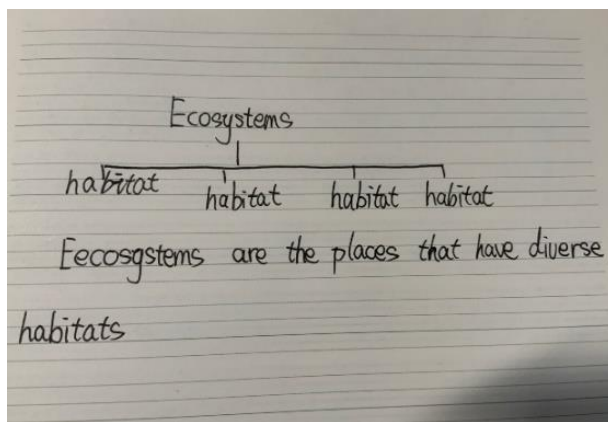 Ecosystems
habitat habitat habitat habitat
Eecosgstems are the places that have diverse
habitats